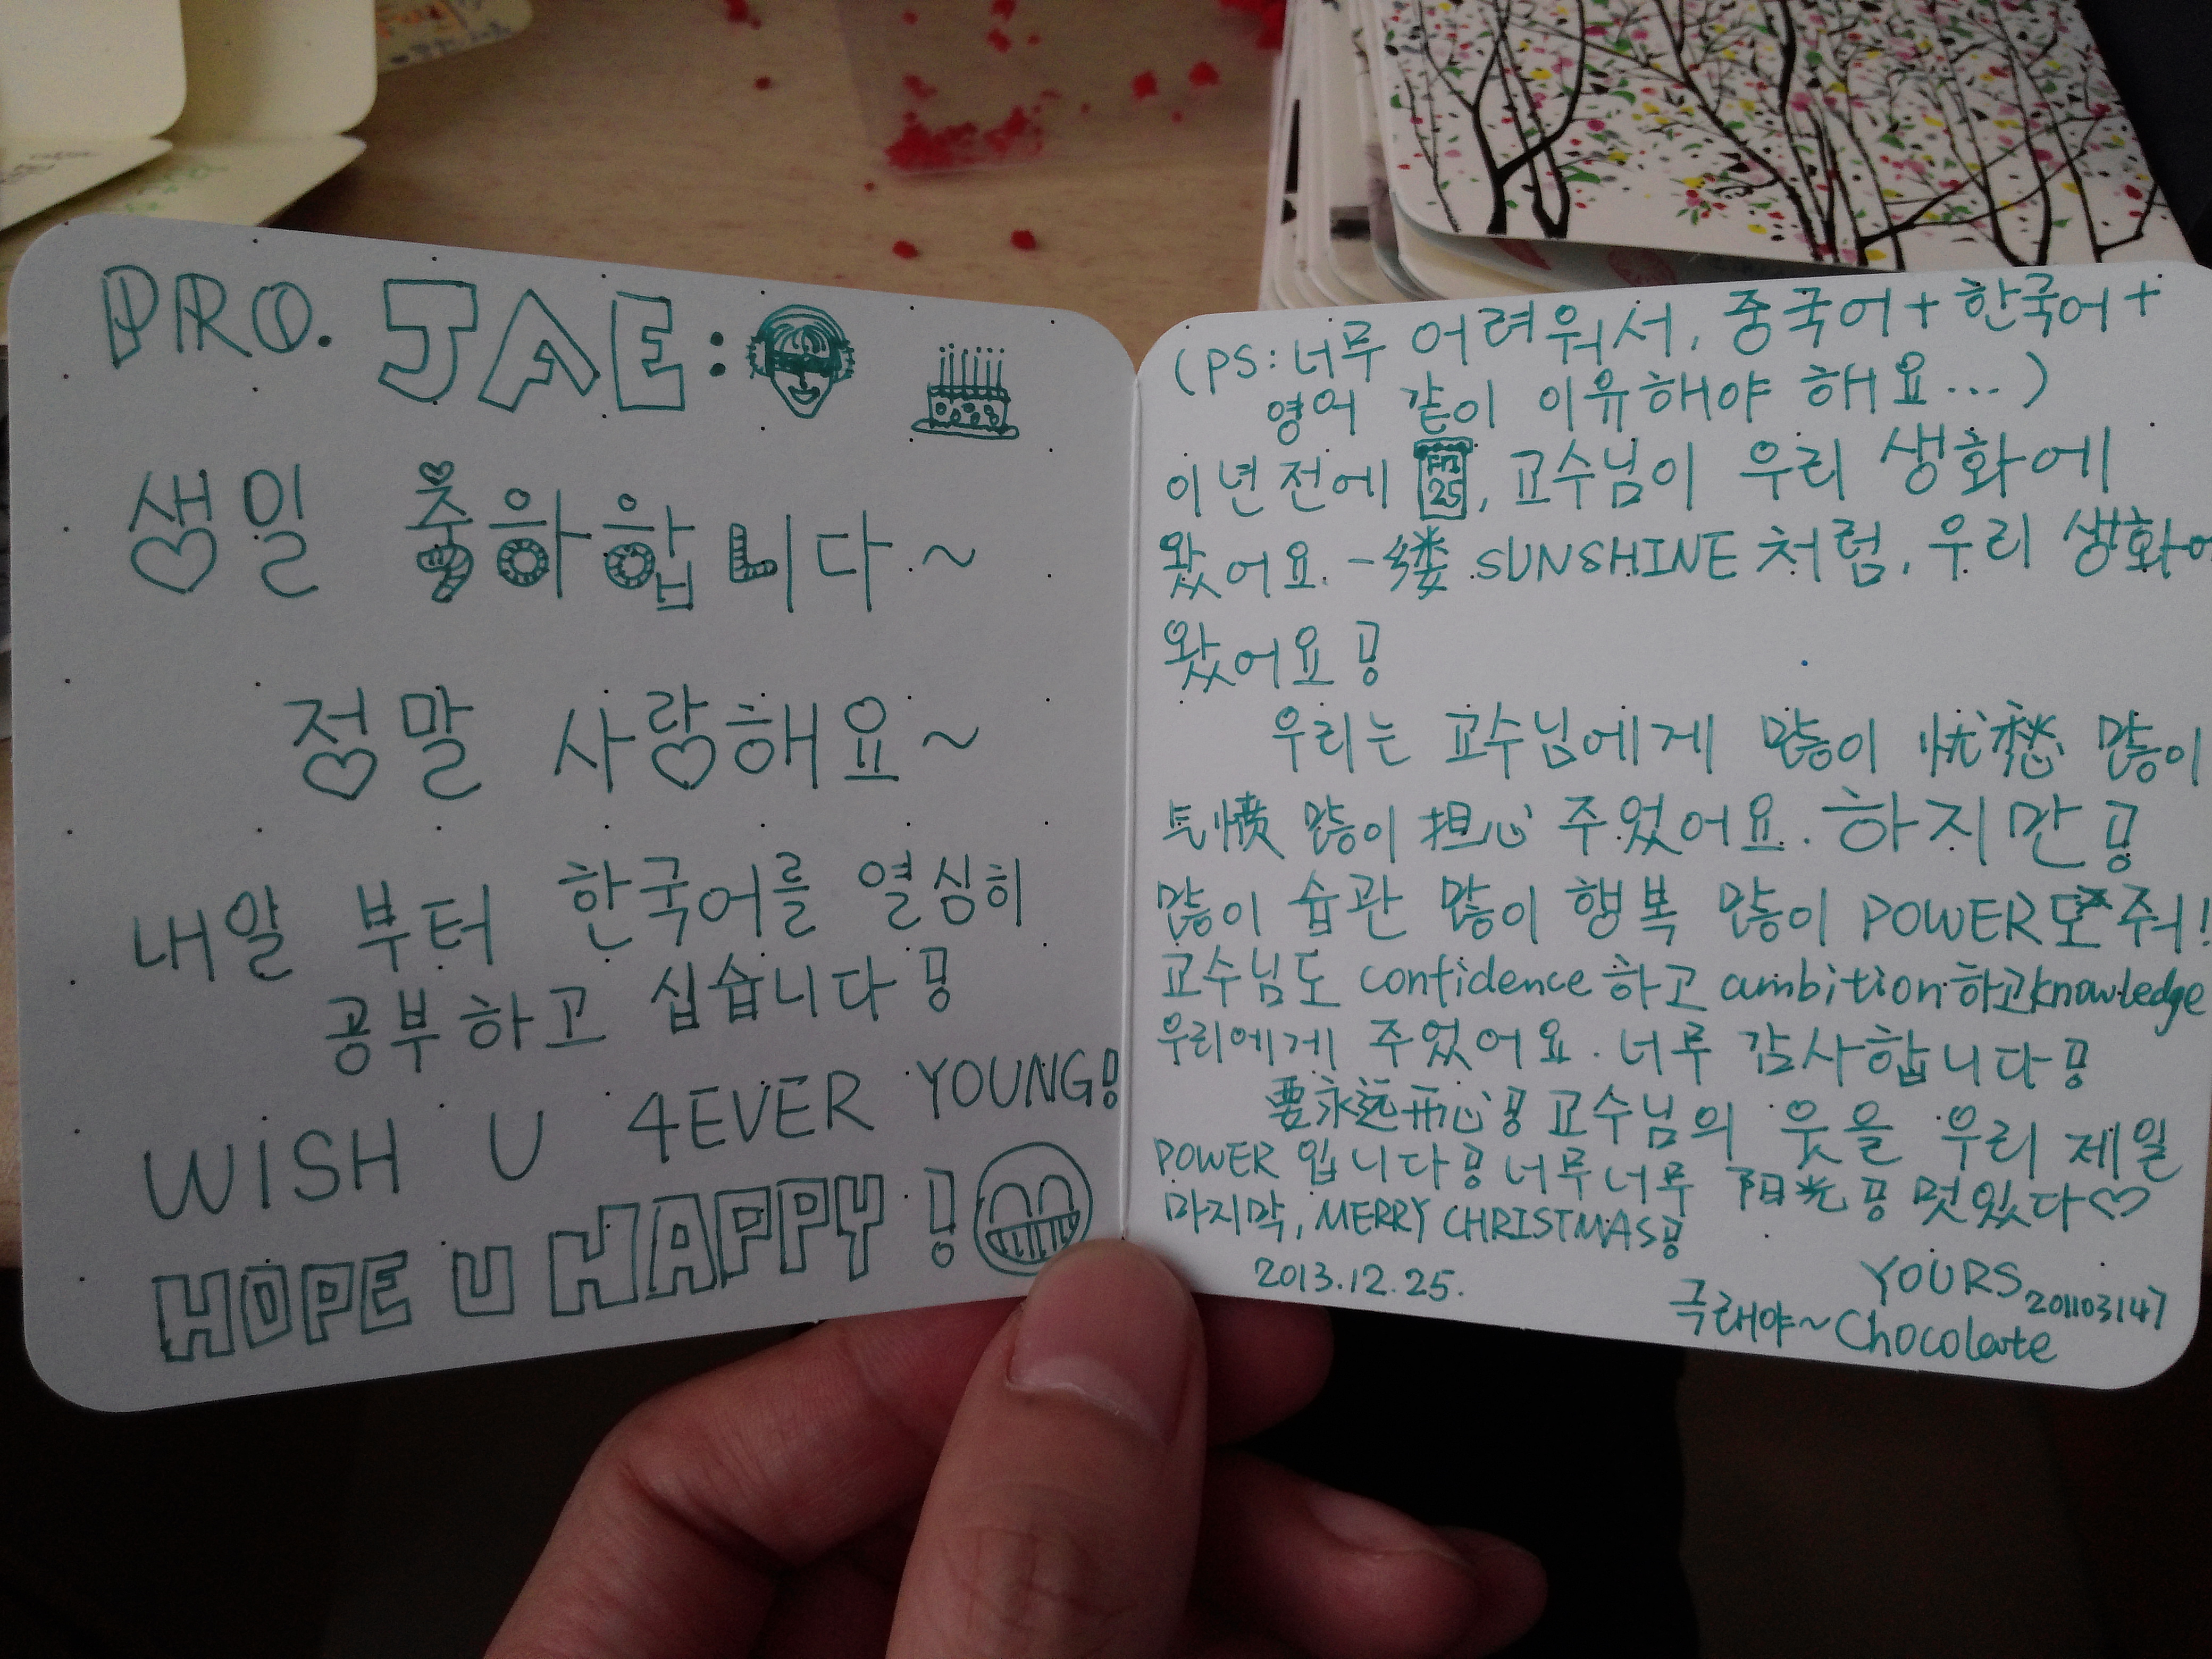 PRO. JAE:
생일 중하합니다~
정말 사랑해요~
내알 부터 한국어를 열심히
공부하고 십습니다!
WISH U 4EVER YOUNG!
HOPE U HAPPY!
(PS:너무 어려워서, 중국어+한국어+
영어 같이 이유해야 해요...)
이년전에 25, 교수님이 우리 생화에
왔어요. 一缕 SUNSHINE처럼, 우리 생화에
왔어요!
우리는 교수님에게 많이 忧愁 많이
气愤 많이 担心 주웠어요. 하지만!
많이 습관 많이 행복 많이 POWER도 주워!
교수님도 confidence하고 ambition하고knowledge
우리에게 주었어요. 너무 감사합니다!
要永远开心! 교수님의 웃을 우리 제일
POWER 입니다! 너무너무 阳光! 멋있다♡
마지막, MERRY CHRISTMAS!
2013.12.25.
YOURS 201103147
극래야~Chocolate